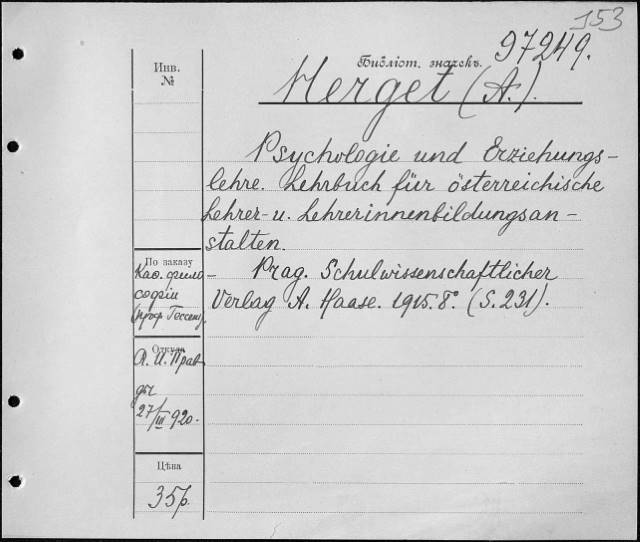 153
97249.
Инв.
№
Библіот. значекъ.
Merget (A.).
Psychologie und Erziehungs-
lehre. Lehrbuch für österreichische
Lehrer- u. Lehrerinnenbildungsan-
stalten.
- Prag. Schulwissenschaftlicher
Verlag A. Haase. 1915. 8°. (S. 231).
По заказу
Каѳ. фило-
софіи
(проф. Гессен).
Откуда
А. И. Прав-
ды
27/III 920.
Цѣна
35р.